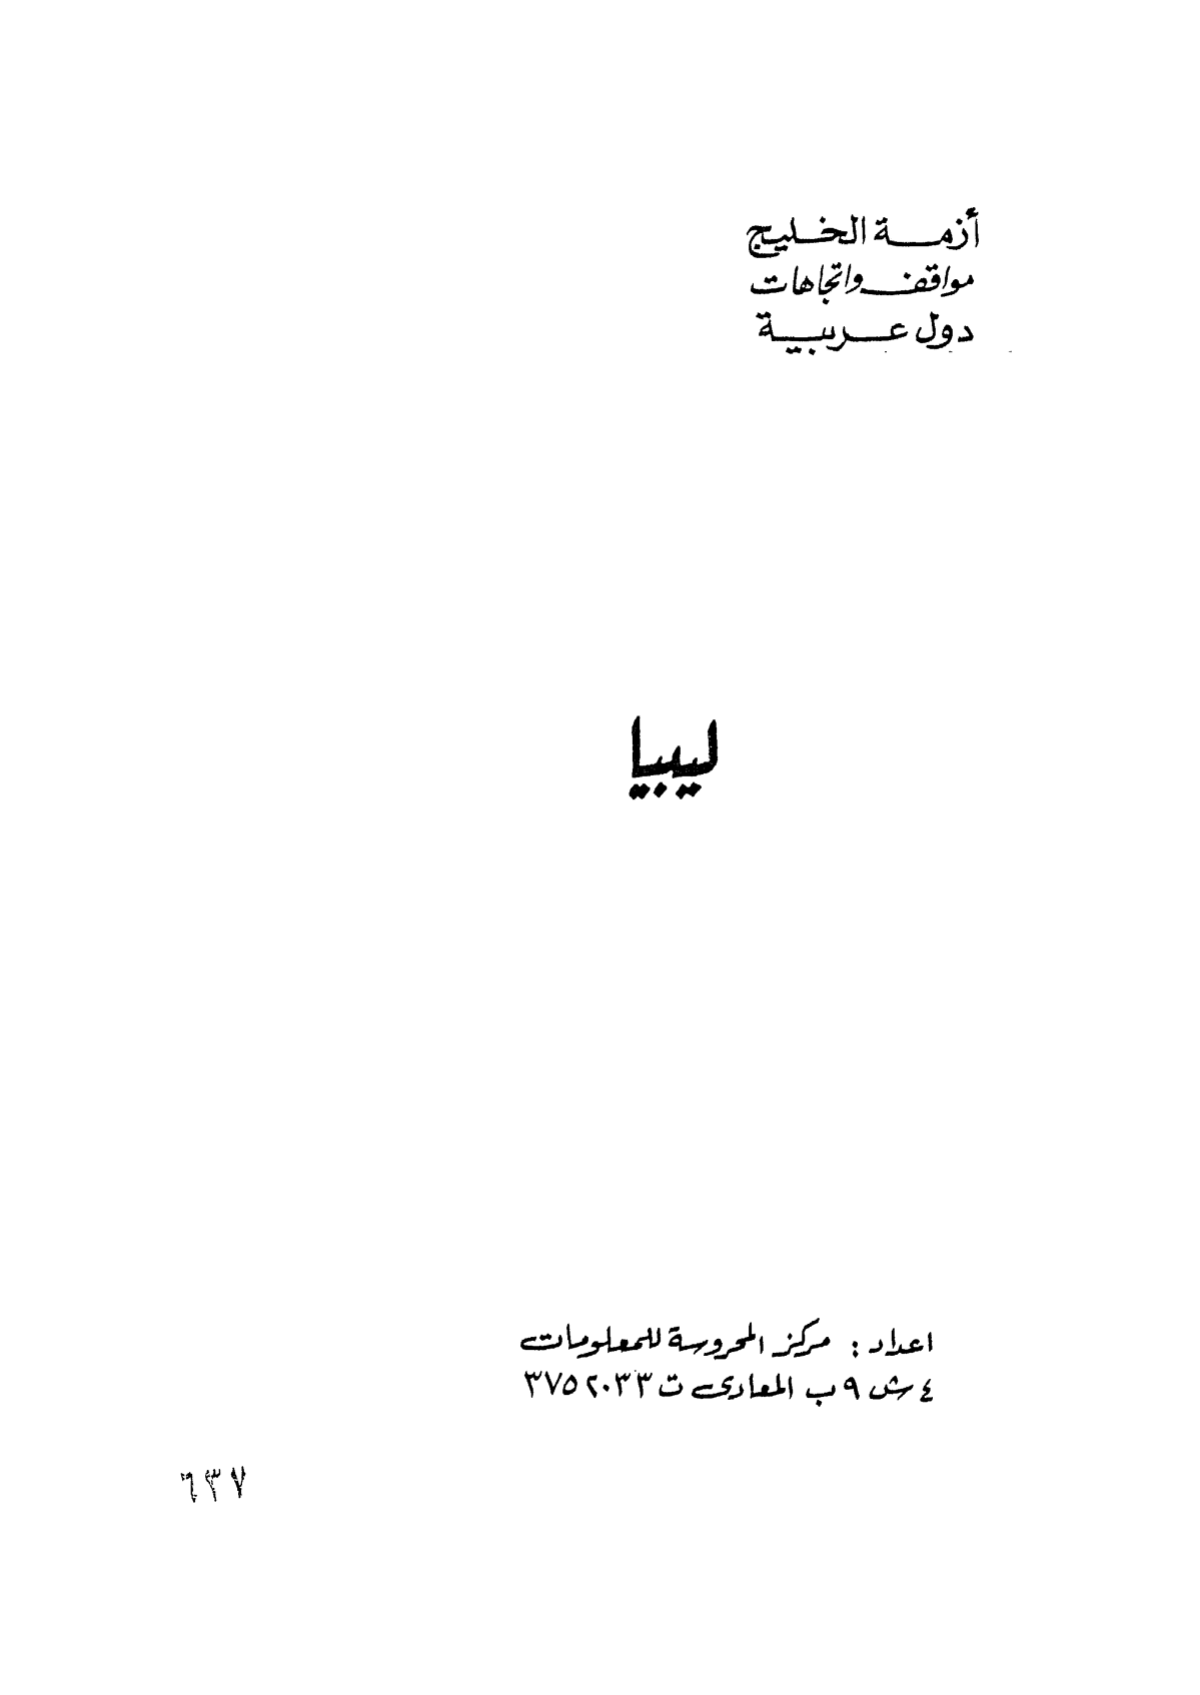 أزمة الخليج
مواقف واتجاهات
دول عربية
ليبيا
اعداد : مركز المحروسة للمعلومات
٤ ش ٩ ب المعادى ت ٣٧٥٢٠٣٣
٦٣٧